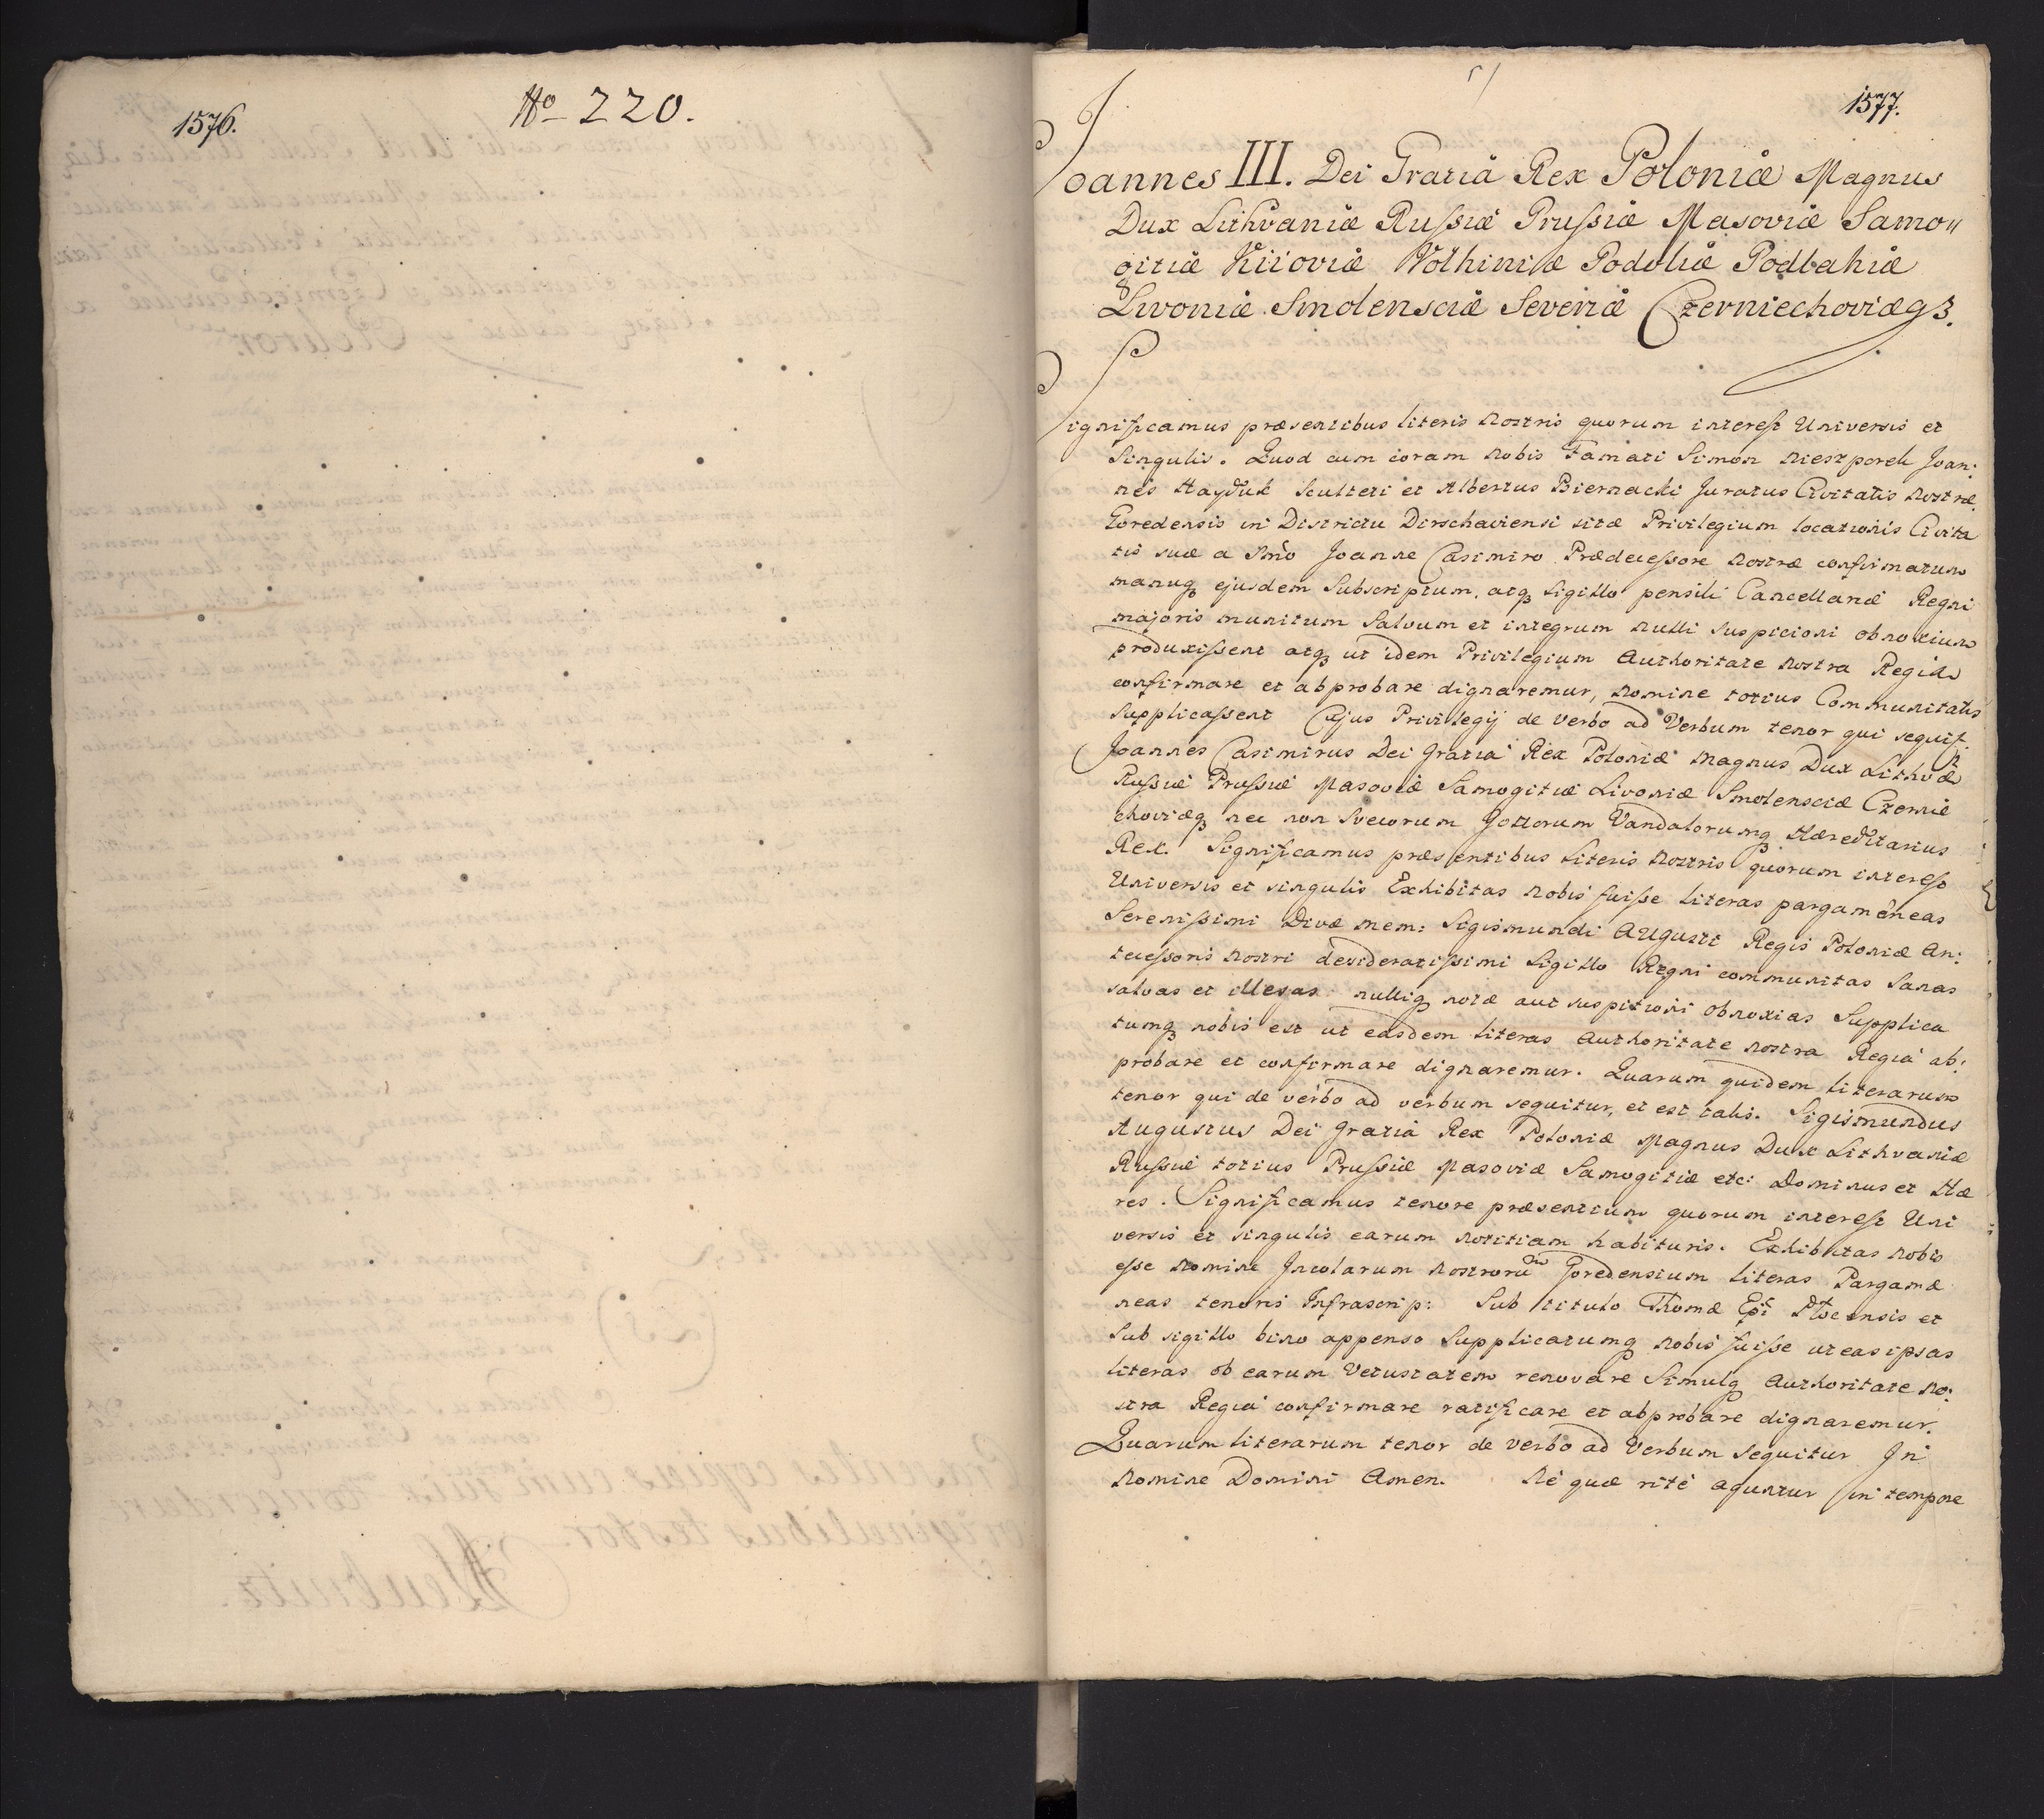 1576.
No 220.
1577.
Joannes III. Dei Gratiâ Rex Poloniæ Magnus
Dux Lithvaniæ Russiæ Prussiæ Masoviæ Samo〃
gitiæ Kiioviæ Volhiniæ Podoliæ Podlahiæ
Livoniæ Smolensciæ Severiæ Czerniechoviæqȝ.
Significamus præsentibus literis Nostris quorum interest Universis et
Singulis. Quod cum coram Nobis Famati Simon Nieszporek Joan:
nes Hayduk Sculteti et Albertus Biernacki Juratus Civitatis Nostræ
Goredensis in Districtu Dirschaviensi sitæ Privilegium locationis Civita
tis suæ a Smo Joanne Casimiro Prædecessore Nostræ confirmatum
manuqȝ ejusdem Subscriptum, atqȝ Sigillo pensili Cancellariæ Regni
majoris munitum Salvum et integrum nulli suspicioni obnoxium
produxissent atqȝ ut idem Privilegium Authoritate Nostra Regia
confirmare et abprobare dignaremur, nomine totius Communitatis
Supplicassent Cujus Privilegij de verbo ad Verbum tenor qui sequit.
Joannes Casimirus Dei Gratiâ Rex Poloniæ Magnus Dux Lithvæ
Russiæ Prussiæ Masoviæ Samogitiæ Livoniæ Smolensciæ Czernie
choviæqȝ nec non Svecorum Gottorum Vandalorumqȝ Hæreditarius
Rex. Significamus præsentibus Literis Nostris quorum interest
Universis et singulis Exhibitas Nobis fuisse literas pargameneas
Serenissimi Divæ mem: Sigismundi Augusti Regis Poloniæ An:
tecessoris Nostri desideratissimi Sigillo Regni communitas Sanas
salvas et illesas nulliqȝ notæ aut suspitioni obnoxias Supplica
tumqȝ nobis est ut easdem literas Authoritate Nostra Regiâ ab:
probare et confirmare dignaremur. Quarum quidem literarum
tenor qui de verbo ad verbum sequitur, et est talis. Sigismundus
Augustus Dei Gratiâ Rex Poloniæ Magnus Dux Lithvaniæ
Russiæ totius Prussiæ Masoviæ Samogitiæ etc: Dominus et Hæ
res. Significamus tenore præsentium quorum interest Uni
versis et singulis earum notitiam habituris. Exhibitas Nobis
esse Nomine Incolarum Nostroru Goredensium literas Pargamæ
neas tenoris Infrascrip: Sub titulo Thomæ Epi Ploccensis et
Sub sigillo bino appenso Supplicatumqȝ Nobis fuisse ut eas ipsas
literas ob earum Vetustatem renovare Simulqȝ Authoritate No:
stra Regiâ confirmare ratificare et abprobare dignaremur.
Quarum literarum tenor de verbo ad Verbum sequitur In
Nomine Domini Amen. Ne quæ rite aguntur in tempore